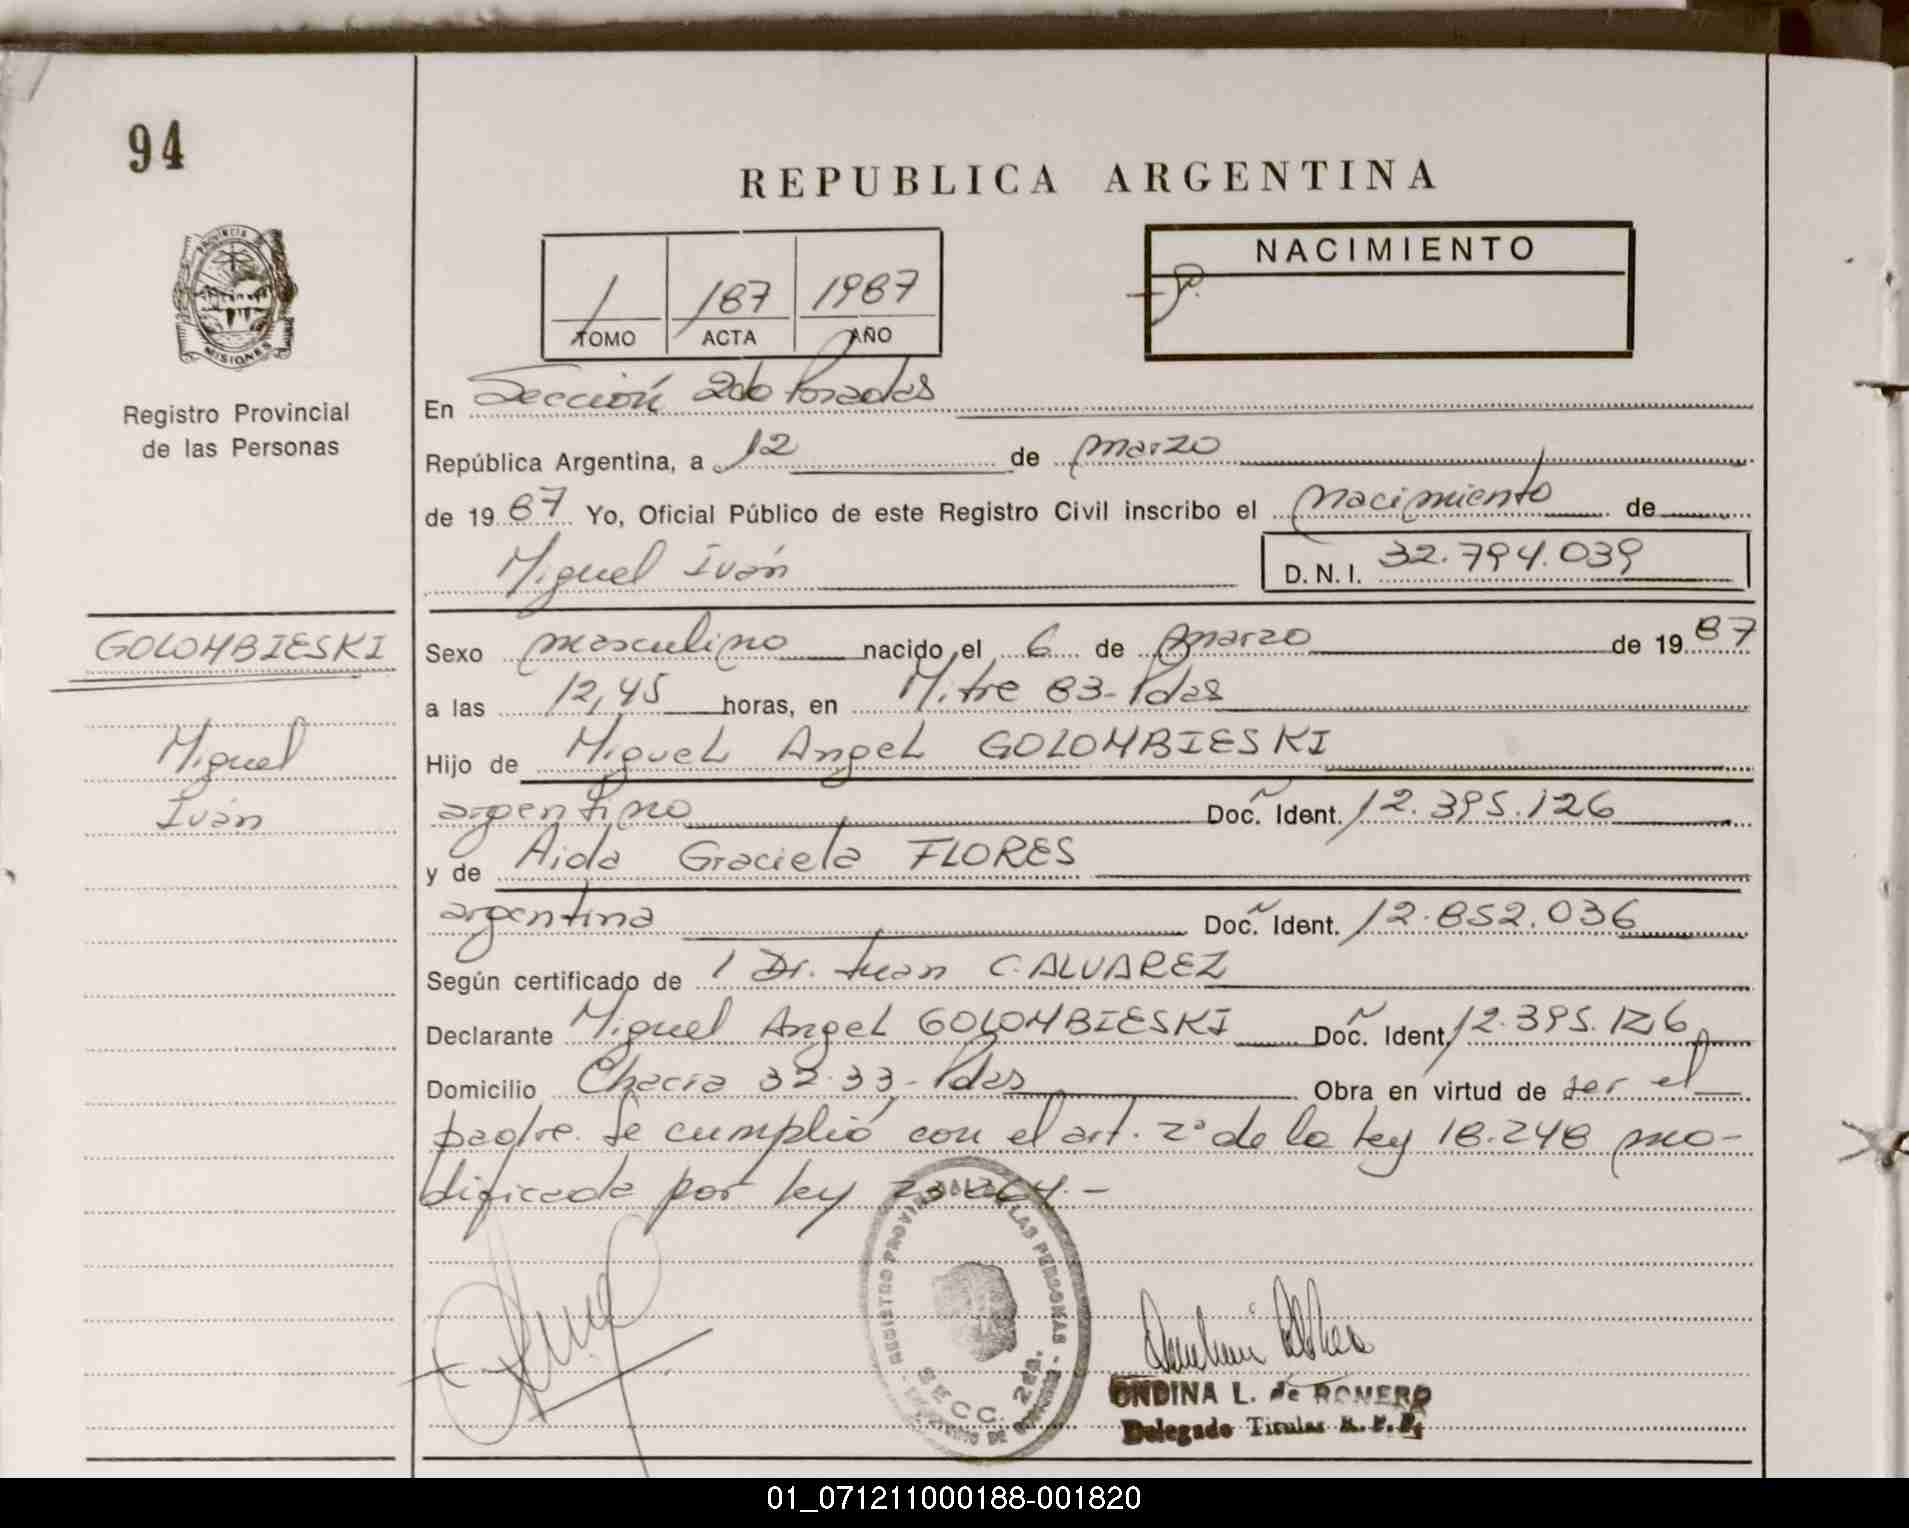 94
REPUBLICA ARGENTINA
PROVINCIA DE
MISIONES
Registro Provincial
de las Personas
1 187 1987
TOMO ACTA AÑO
NACIMIENTO
En Sección 2do Posadas
República Argentina, a 12 de marzo
de 1987 Yo, Oficial Público de este Registro Civil inscribo el nacimiento de
Miguel Iván D.N.I. 32.794.039
GOLOMBIESKI
Miguel
Iván
Sexo masculino nacido el 6 de marzo de 1987
a las 12,45 horas, en Mitre 83- Pdas
Hijo de Miguel Angel GOLOMBIESKI
argentino Doc. Ident. 12.395.126
y de Aida Graciela FLORES
argentina Doc. Ident. 12.852.036
Según certificado de 1 Dr. Juan C. ALVAREZ
Declarante Miguel Angel GOLOMBIESKI Doc. Ident. 12.395.126
Domicilio Chacra 32-33- Pdas Obra en virtud de ser el
padre. Se cumplió con el art. 2º de la ley 18.248 mo-
dificada por ley 23.264.-
REGISTRO PROVINCIAL DE LAS PERSONAS
SECC. 2da.
ONDINA L. de ROMERO
Delegado Titular R. P. P.
01_071211000188-001820